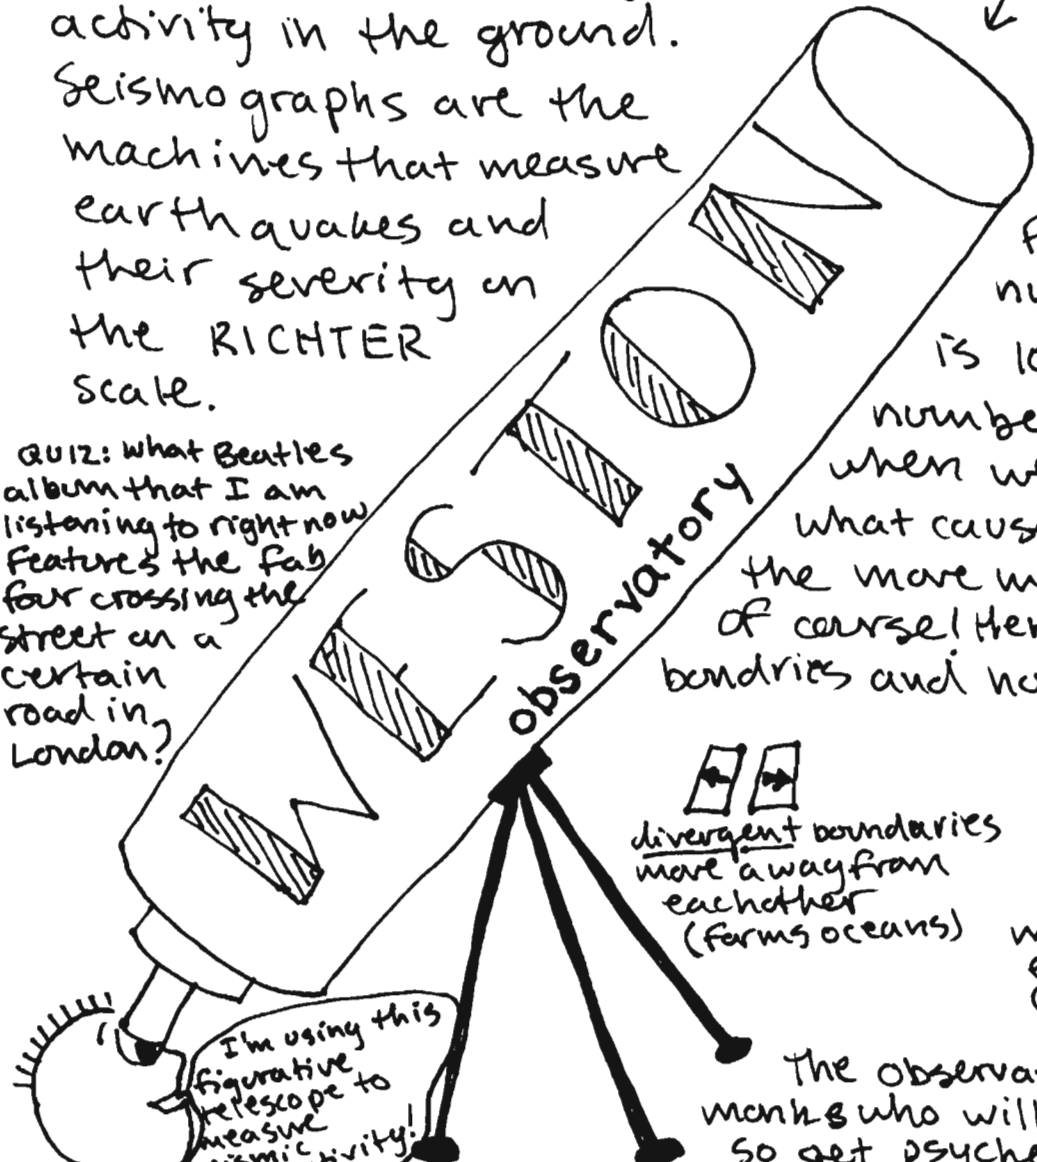 activity in the ground.
Seismographs are the
machines that measure
earthquakes and
their severity on
the RICHTER
scale.
QUIZ: What Beatles
album that I am
listening to right now
features the fab
four crossing the
street on a
certain
road in
London?
WESTON
observatory
is
when
what
the move
of course!
bondries and
divergent boundaries
move away from
eachother
(forms oceans)
I'm using this
figurative
telescope to
measure
The
monks who will
so get